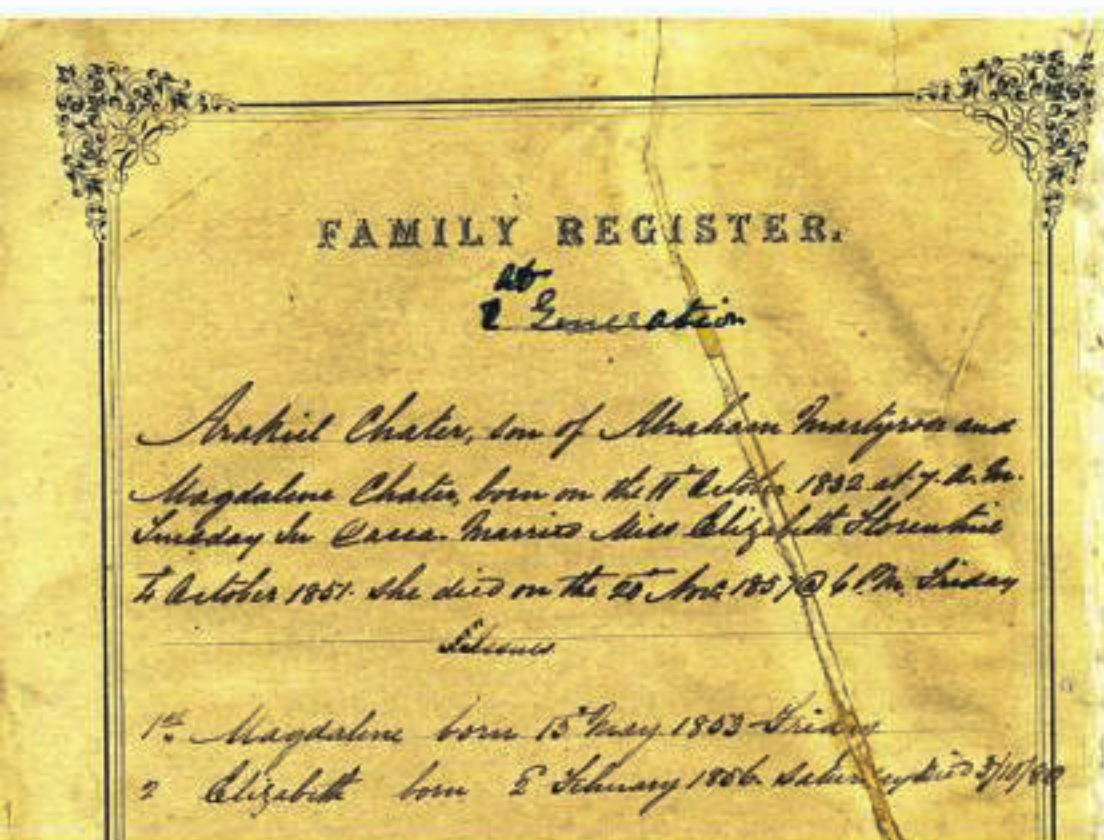 FAMILY REGISTER.
Generation
Arakiel Chater, son of Abraham Martyrose and
Magdalene Chater, born on the 11th October 1832 at 7. A.M.
Tuesday In Dacca. Married Miss Elizabeth Florentine
October 1851. She died on the 20th Nov. 1857 @ 6 P.M. Friday
Issues
1st Magdalene born 15th May 1853 Friday
2 Elizabeth born 2d February 1856. Saturday died